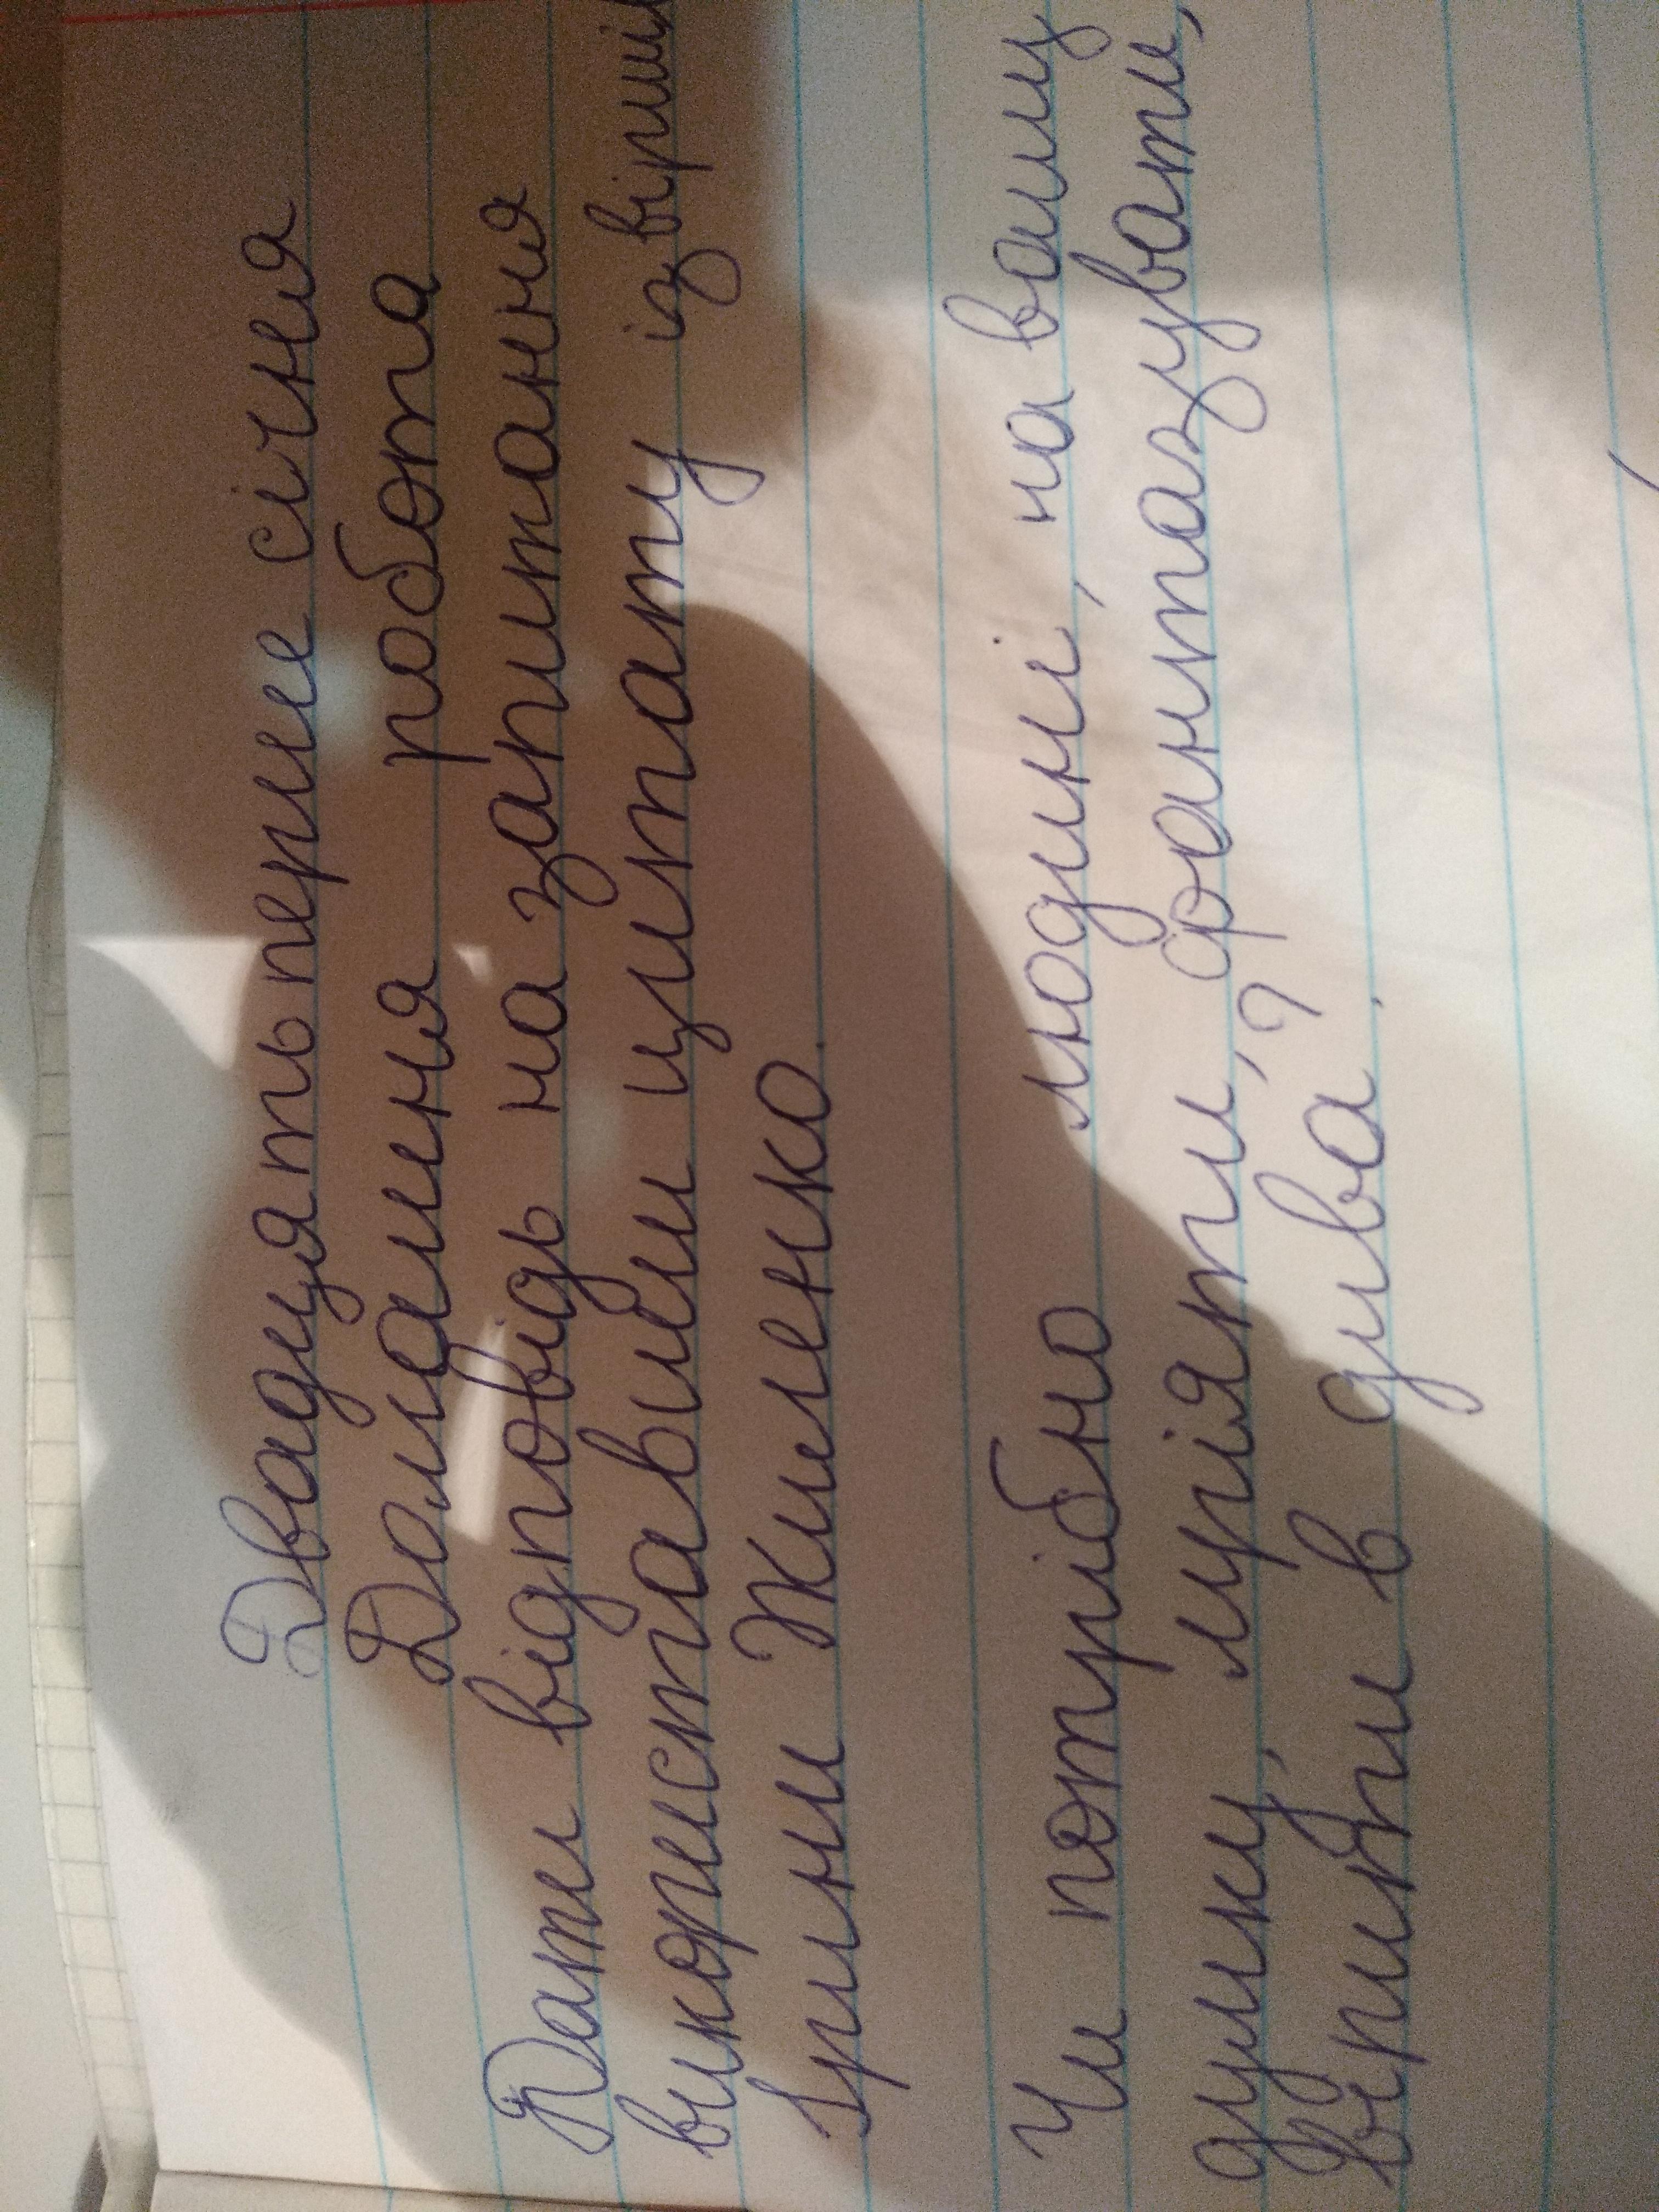 Двадцять перше січня
Домашня робота
Дати відповідь на запитання
використавши цитату із віршів
Ірини Жиленко.
Чи потрібно людині, на вашу
думку, мріяти, фантазувати,
вірити в дива?